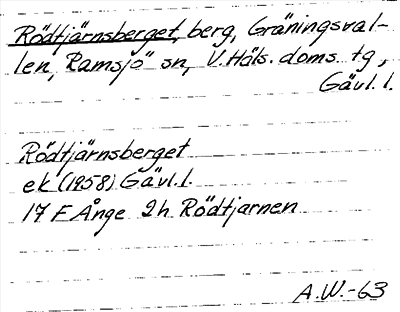 Rödtjärnsberget, berg, Gräningsval-
len, Ramsjö sn, V. Häls. doms. tg,
Gävl. l.
Rödtjärnsberget
ek (1958) Gävl. l.
17 F Ånge 2h Rödtjarnen
A.W.-63